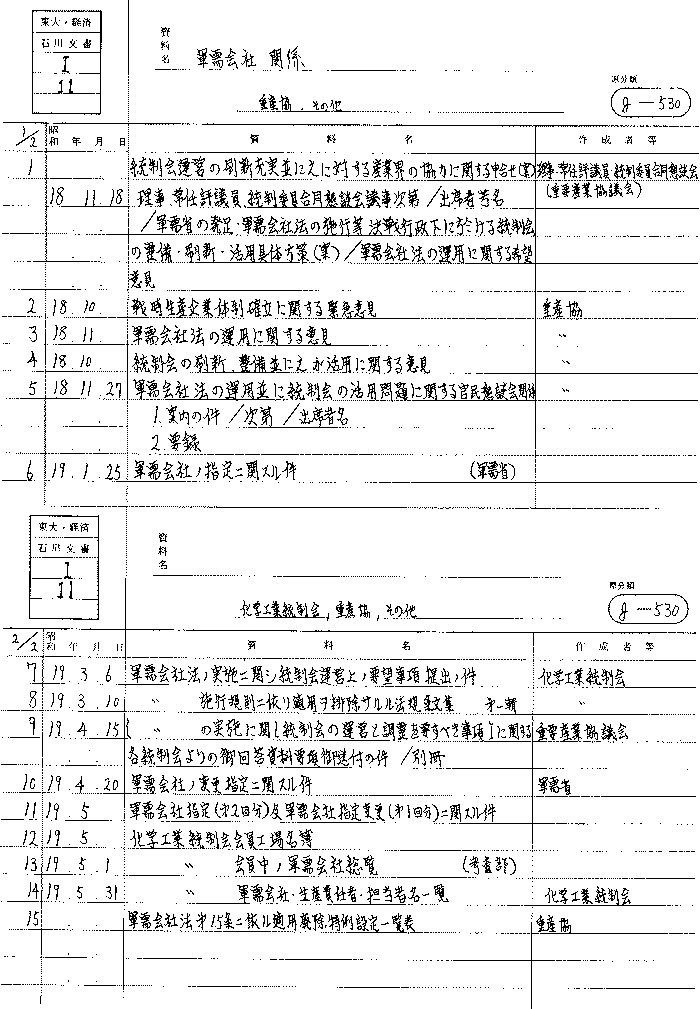 東大・経済
石川文書
I
11
資料名
軍需会社 関係
重産協、その他
原分類
g-530
1/2 昭和 年 月 日 資 料 名 作 成 者 等
1 統制会運営の刷新充実並にえに対する産業界の協力に関する申合せ(案) 理事・常任評議員・統制委員合同懇談会
18 11 18 理事、常任評議員、統制委員合同懇談会議事次第/出席者芳名 (重要産業協議会)
/軍需省の発足、軍需会社法の施行等 決戦行政下に於ける統制会
の整備・刷新・活用具体方策(案)/軍需会社法の運用に関する希望
意見
2 18 10 戦時生産企業体制確立に関する緊急意見 重産協
3 18 11 軍需会社法の運用に関する意見 〃
4 18 10 統制会の刷新、整備並にえが活用に関する意見 〃
5 18 11 27 軍需会社法の運用並に統制会の活用問題に関する官民懇談会関係 〃
1. 案内の件/次第/出席者名
2. 要録
6 19 1 25 軍需会社ノ指定ニ関スル件 (軍需省)
東大・経済
石川文書
I
11
資料名
化学工業統制会, 重産協, その他
原分類
g-530
2/2 昭和 年 月 日 資 料 名 作 成 者 等
7 19 3 6 軍需会社法ノ実施ニ関シ統制会運営上ノ要望事項提出ノ件 化学工業統制会
8 19 3 10 〃 施行規則ニ依リ適用ヲ排除サルル法規全文集 第一輯 〃
9 19 4 15 「 〃 の実施に関し統制会の運営と調整を要すべき事項」に関する 重要産業協議会
各統制会よりの御回答資料要項御送付の件 /別冊
10 19 4 20 軍需会社ノ変更指定ニ関スル件 軍需省
11 19 5 軍需会社指定(第2回分)及軍需会社指定変更(第1回分)ニ関スル件
12 19 5 化学工業統制会会員工場名簿
13 19 5 1 〃 会員中ノ軍需会社総覧 (考査部)
14 19 5 31 〃 軍需会社・生産責任者・担当者名一覧 化学工業統制会
15 軍需会社法第15条ニ依ル適用廃除特例設定一覧表 重産協